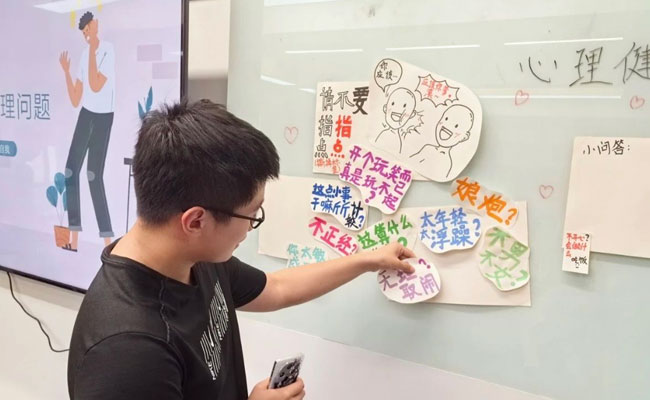 理问题
心理健
你
应该~
请不要
指指
点点
开个玩笑而已
真是玩不起
这点小事
干嘛斤斤计较?
不正经?
这算什么
太年轻
太浮躁?
娘炮?
不男
不女?
无理
取闹?
你太敏
小问答:
不开心?
吃饭